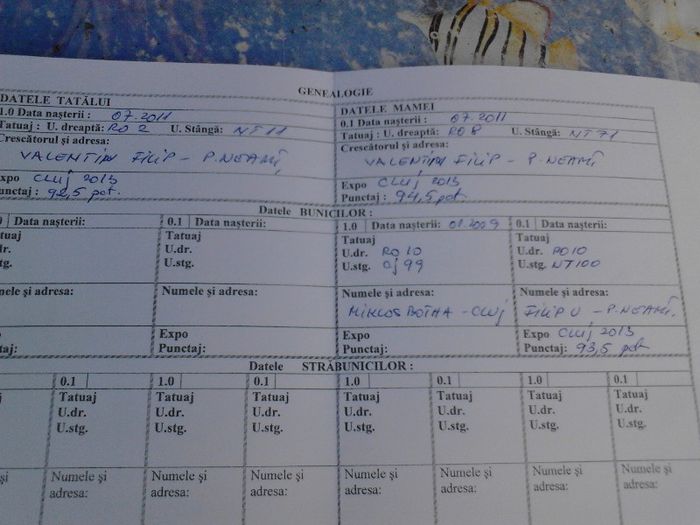 GENEALOGIE
DATELE TATĂLUI
1.0 Data nașterii : 07.2011
Tatuaj : U. dreaptă: RO 2 U. Stângă: NT 11
Crescătorul și adresa:
VALENTIN FILIP - P. NEAMȚ
Expo CLUJ 2013
Punctaj : 92,5 pct.
DATELE MAMEI
0.1 Data nașterii : 07.2011
Tatuaj : U. dreaptă: RO 8 U. Stângă: NT 71
Crescătorul și adresa:
VALENTIN FILIP - P. NEAMȚ
Expo CLUJ 2013
Punctaj : 94,5 pct.
Datele BUNICILOR :
Data nașterii: 0.1 Data nașterii: 1.0 Data nașterii: 01.2009 0.1 Data nașterii:
tuaj Tatuaj Tatuaj Tatuaj
dr. U.dr. U.dr. RO 10 U.dr. RO10
tg. U.stg. U.stg. CJ 99 U.stg. NT100
mele și adresa: Numele și adresa: Numele și adresa: Numele și adresa:
MIKLOS BOTHA - CLUJ FILIP V - P. NEAMȚ.
Expo Expo Expo CLUJ 2013
taj: Punctaj: Punctaj: Punctaj: 93,5 pct
Datele STRĂBUNICILOR :
0.1 1.0 0.1 1.0 0.1 1.0 0.1
Tatuaj Tatuaj Tatuaj Tatuaj Tatuaj Tatuaj Tatuaj
U.dr. U.dr. U.dr. U.dr. U.dr. U.dr. U.dr.
U.stg. U.stg. U.stg. U.stg. U.stg. U.stg. U.stg.
și Numele și Numele și Numele și Numele și Numele și Numele și Numele și
adresa: adresa: adresa: adresa: adresa: adresa: adresa: